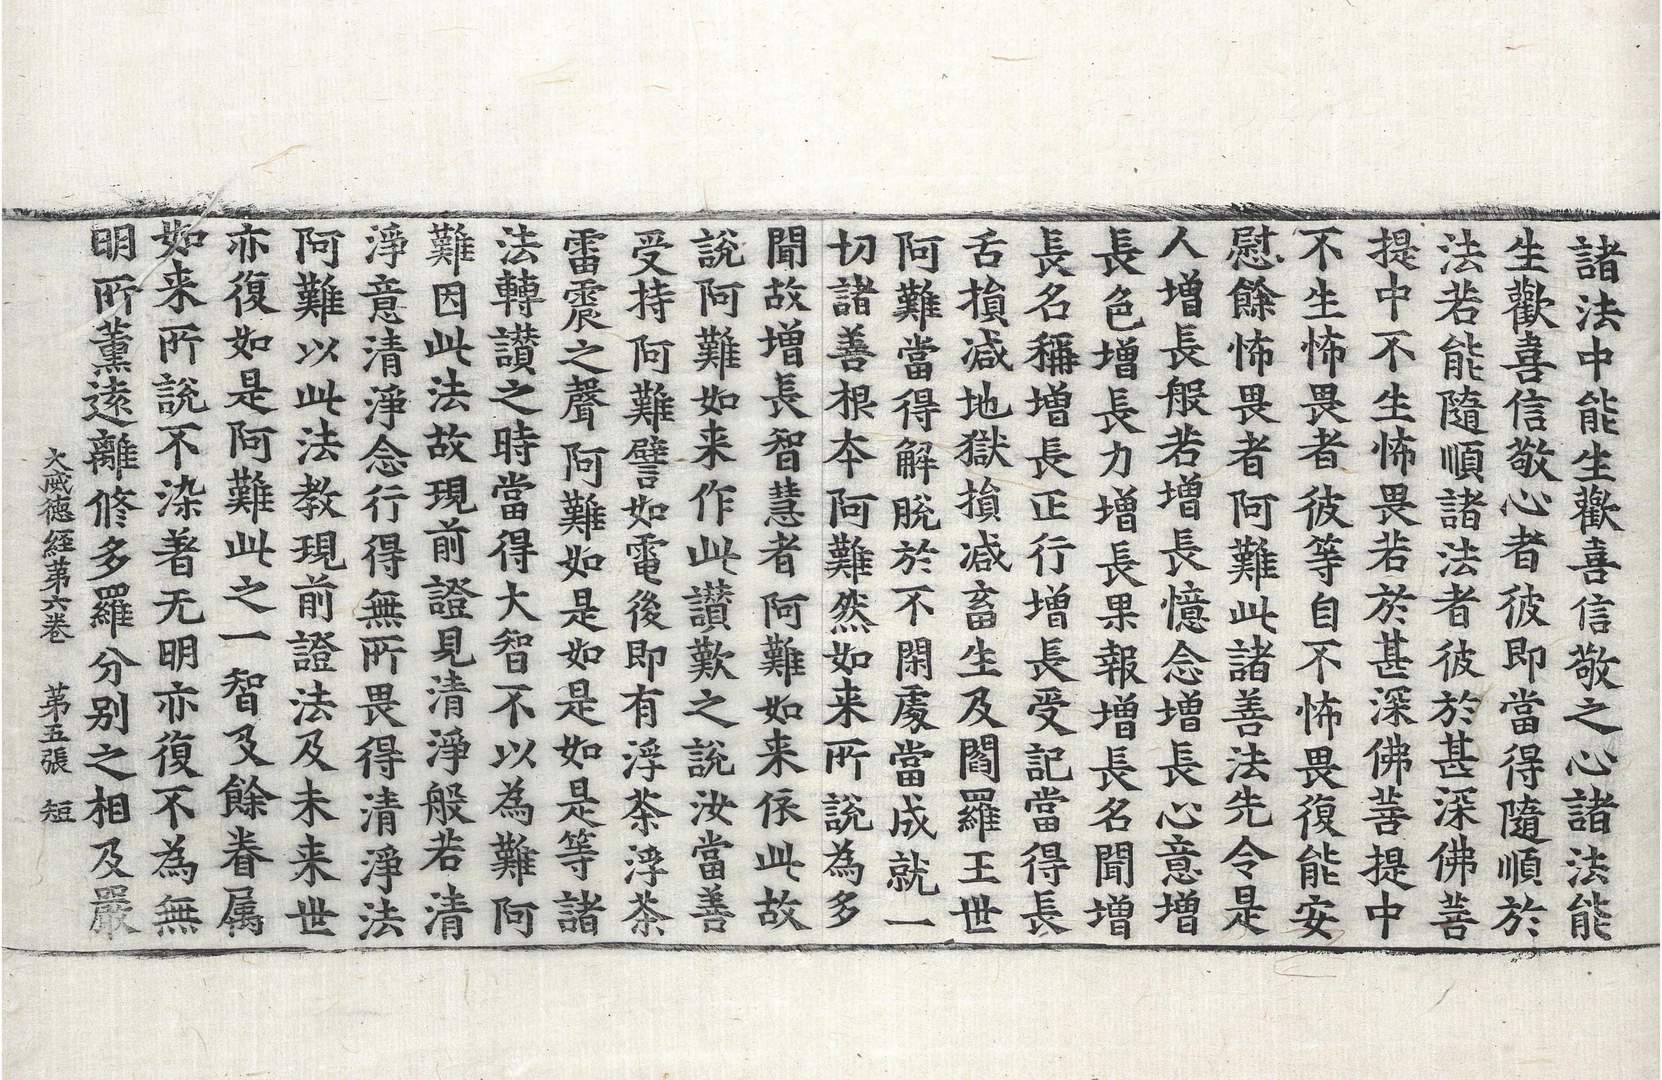 諸法中能生歡喜信敬之心諸法能
生歡喜信敬心者彼即當得隨順於
法若能隨順諸法者彼於甚深佛菩
提中不生怖畏若於甚深佛菩提中
不生怖畏者彼等自不怖畏復能安
慰餘怖畏者阿難此諸善法先令是
人增長般若增長憶念增長心意增
長色增長力增長果報增長名聞增
長名稱增長正行增長受記當得長
舌損減地獄損減畜生及閻羅王世
阿難當得解脫於不閑處當成就一
切諸善根本阿難然如来所說為多
聞故增長智慧者阿難如来依此故
說阿難如来作此讚歎之說汝當善
受持阿難譬如電後即有浮荼浮荼
雷震之聲阿難如是如是如是等諸
法轉讚之時當得大智不以為難阿
難因此法故現前證見清淨般若清
淨意清淨念行得無所畏得清淨法
阿難以此法教現前證法及未来世
亦復如是阿難此之一智及餘眷属
如来所說不染著无明亦復不為無
明所薰遠離修多羅分别之相及嚴
大威德経苐六卷　苐五張　短